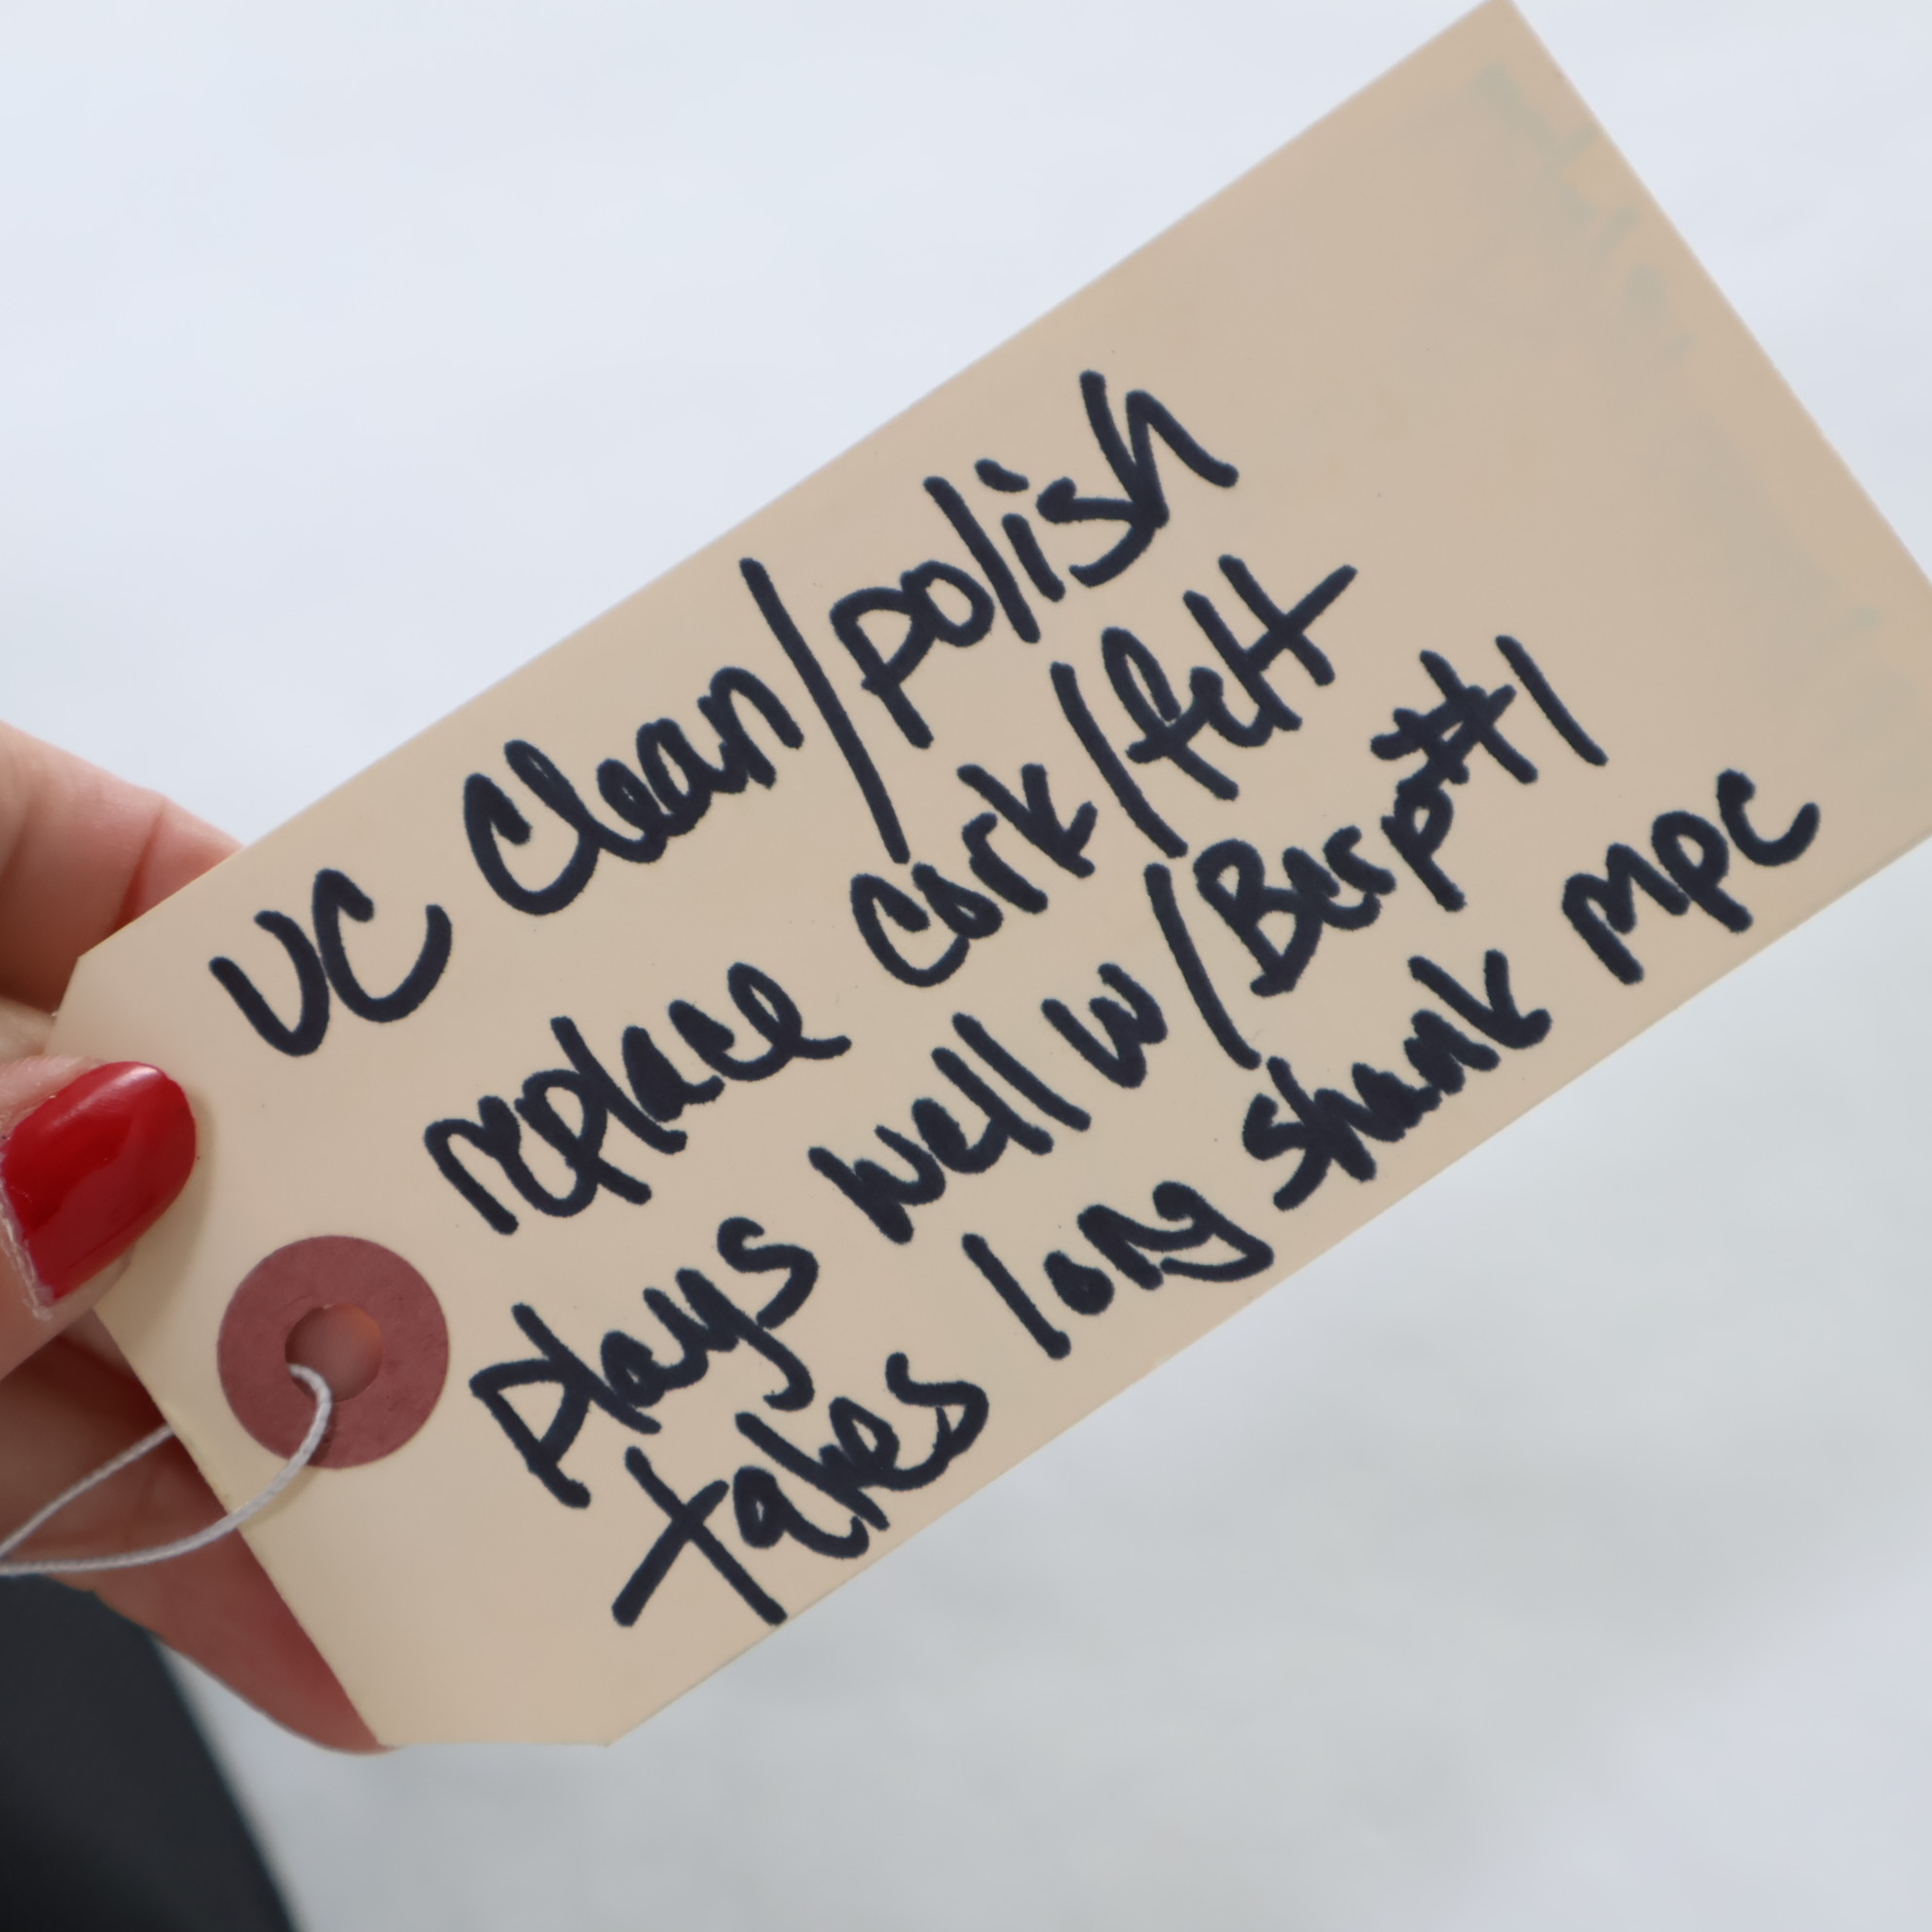 UC Clean/polish
replace Cork/felt
plays well w/Besp#1
takes long shank MPC